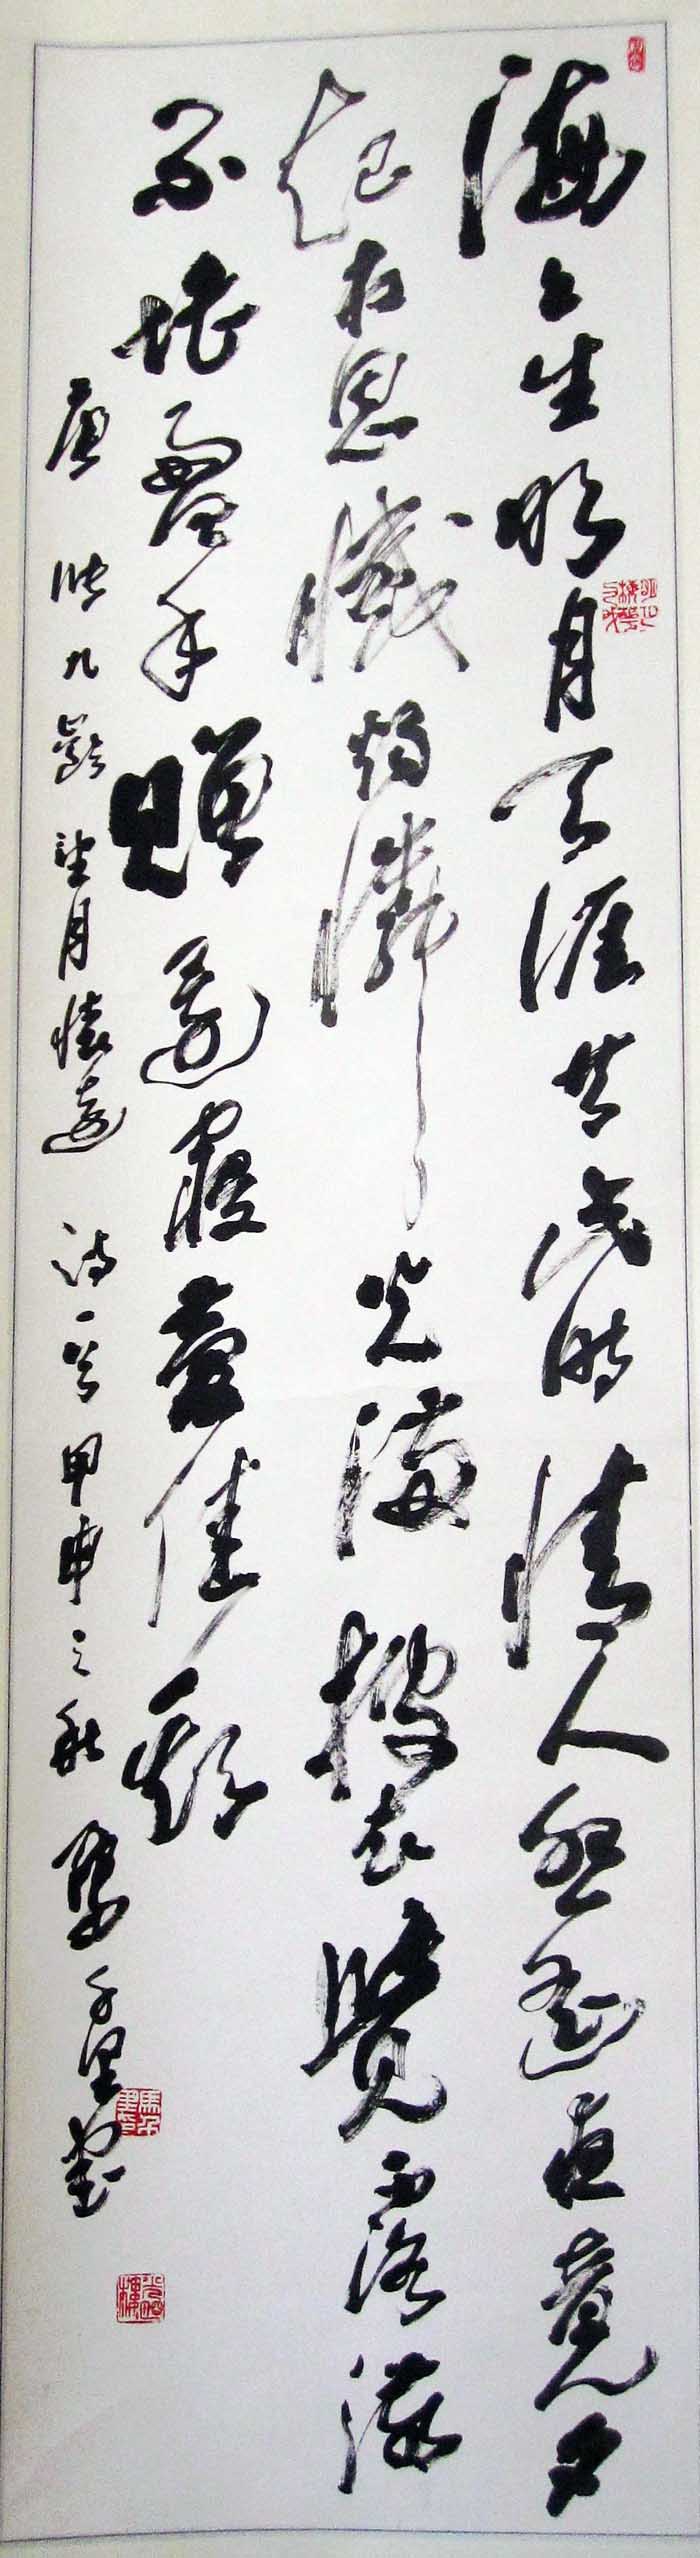 海上生明月天涯共此時情人怨遥夜竟夕
起相思滅燭憐光滿披衣覺露滋
不堪盈手贈還寢夢佳期
唐 張九齡望月懷遠 詩一首甲申之秋 千里書